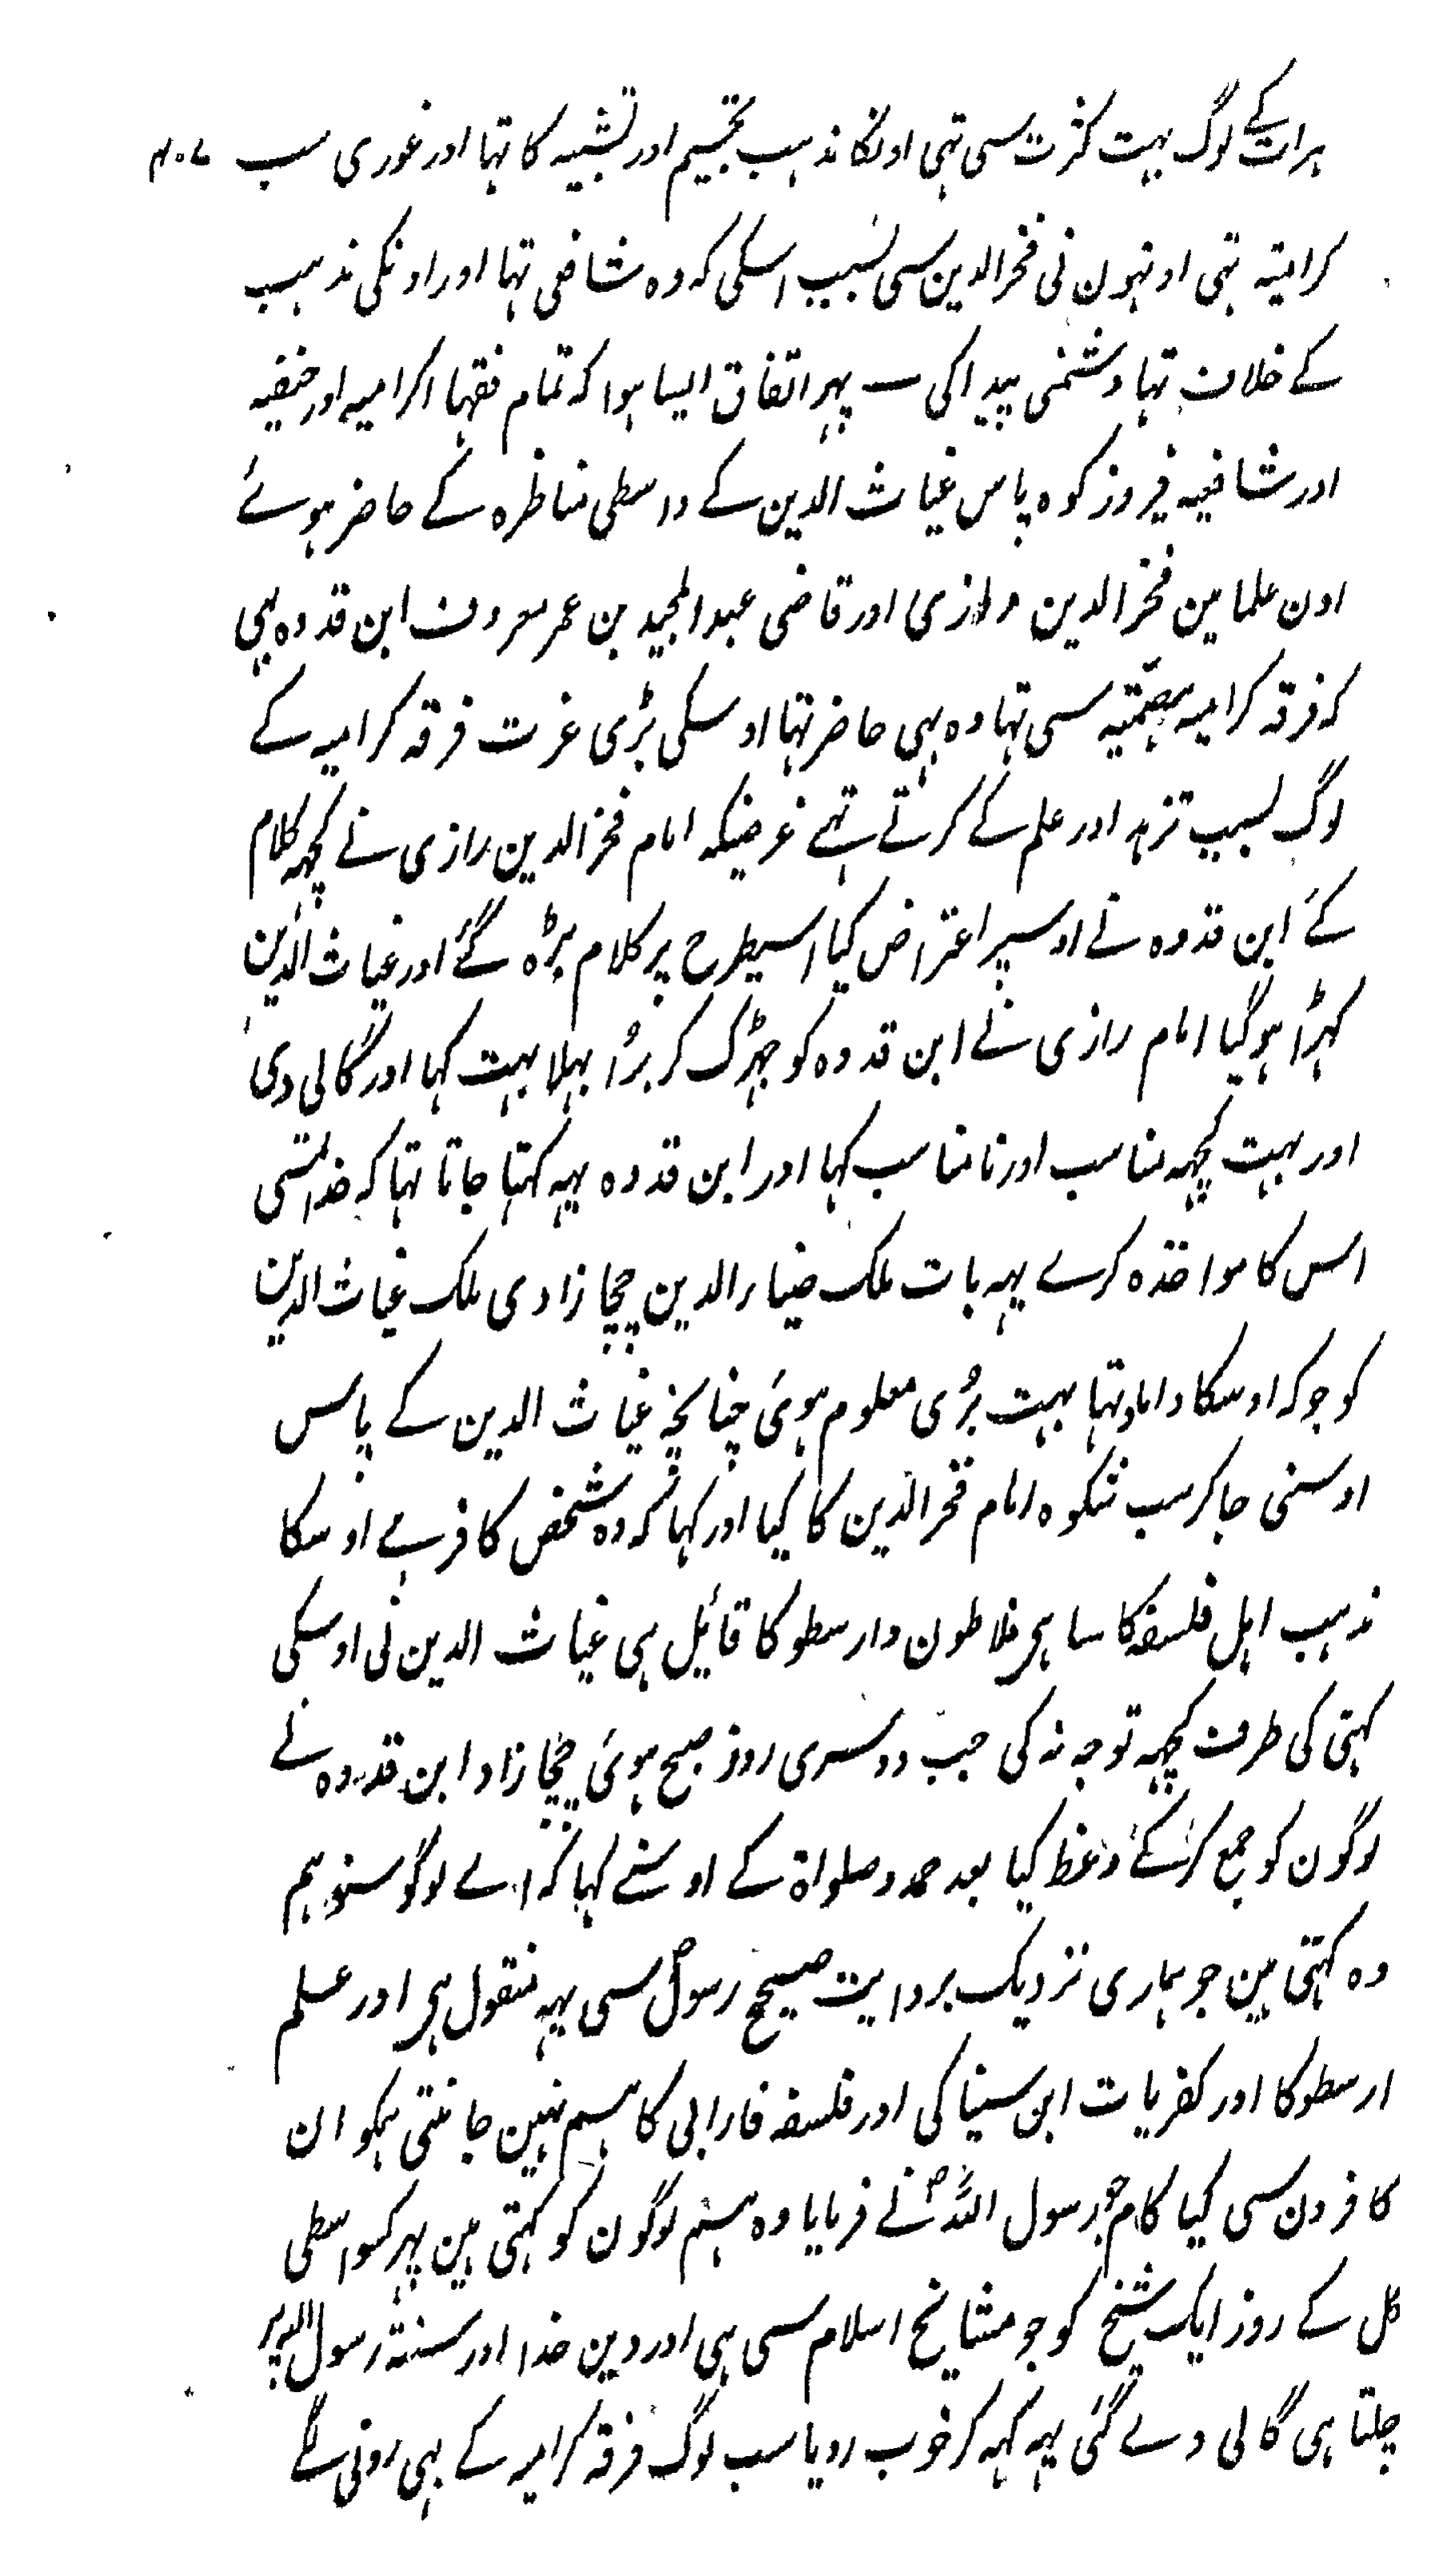 ہرات کے لوگ بہت کثرت سی تہی اونکا مذہب تجسیم اور تشبیہ کا تہا اور غوری سب
کرامیہ تہی اونہون نی فخرالدین سی بسبب اسکی کہ وہ شافعی تہا اور اونکی مذہب
کے خلاف تہا دشمنی پیدا کی ۔ پہر اتفاق ایسا ہوا کہ تمام فقہا کرامیہ اور حنفیہ
اور شافعیہ فیروز کوہ پاس غیاث الدین کے واسطی مناظرہ کے حاضر ہوئے
اون علما مین فخرالدین رازی اور قاضی عبدالمجید بن عمر معروف ابن قدوہ بہی
کہ فرقہ کرامیہ ہیصمیہ سی تہا وہ بہی حاضر تہا اوسکی بڑی عزت فرقہ کرامیہ کے
لوگ بسبب تزہد اور علم کے کرتے تہے غرضیکہ امام فخرالدین رازی نے کچہہ کلام
کئے ابن قدوہ نے اوسپر اعتراض کیا اسیطرح پر کلام بڑہ گئے اور غیاث الدین
کہڑا ہوگیا امام رازی نے ابن قدوہ کو جہڑک کر بُرا بہلا بہت کہا اور گالی دی
اور بہت کچہہ مناسب اور نامناسب کہا اور ابن قدوہ یہہ کہتا جاتا تہا کہ خدا تمسی
اس کا مواخذہ کرے یہہ بات ملک ضیاء الدین چچازادی ملک غیاث الدین
کو جو کہ اوسکا داماد تہا بہت بُری معلوم ہوئی چنانچہ غیاث الدین کے پاس
اوسنی جا کر سب شکوہ امام فخرالدین کا کیا اور کہا کہ وہ شخص کافر ہے اوسکا
مذہب اہل فلسفہ کا سا ہی فلاطون وارسطو کا قائیل ہی غیاث الدین نی اوسکی
کہتی کی طرف کچہہ توجہ نہ کی جب دوسری روز صبح ہوئی چچازاد ابن قدوہ نے
لوگون کو جمع کرکے وعظ کیا بعد حمد وصلواۃ کے اوسنے کہا کہ اے لوگو سنو ہم
وہ کہتی مین جو ہماری نزدیک بروایت صحیح رسولؐ سی یہہ منقول ہی اور علم
ارسطو کا اور کفریات ابن سینا کی اور فلسفہ فارابی کا ہم نہین جانتی ہمکو ان
کافرون سی کیا کام جو رسول اللہؐ نے فرمایا وہ ہم لوگون کو کہتی مین پہر کسواسطی
کل کے روز ایک شیخ کو جو مشایخ اسلام سی ہی اور دین خدا اور سنۃ رسول اللہ پر
چلتا ہی گالی دے گئی یہہ کہہ کر خوب رویا سب لوگ فرقہ کرامیہ کے بہی رونی لگے